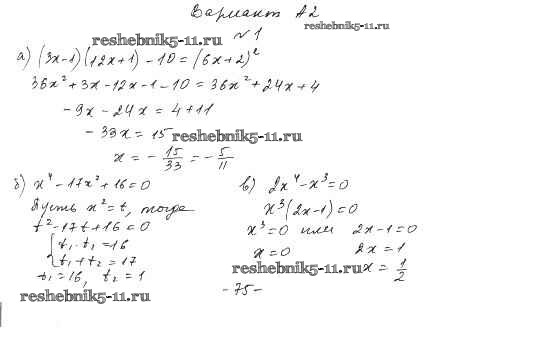 Вариант А2
reshebnik5-11.ru
reshebnik5-11.ru
№1
а) (3x-1)(12x+1) - 10 = (6x+2)²
36x² + 3x - 12x - 1 - 10 = 36x² + 24x + 4
- 9x - 24x = 4 + 11
- 33x = 15
reshebnik5-11.ru
x = - 15/33 = - 5/11
б) x⁴ - 17x² + 16 = 0
Пусть x² = t, тогда
t² - 17t + 16 = 0
{ t₁ · t₂ = 16
t₁ + t₂ = 17
t₁ = 16, t₂ = 1
reshebnik5-11.ru
в) 2x⁴ - x³ = 0
x³(2x-1) = 0
x³ = 0 или 2x - 1 = 0
x = 0 2x = 1
reshebnik5-11.ru
x = 1/2
- 75 -